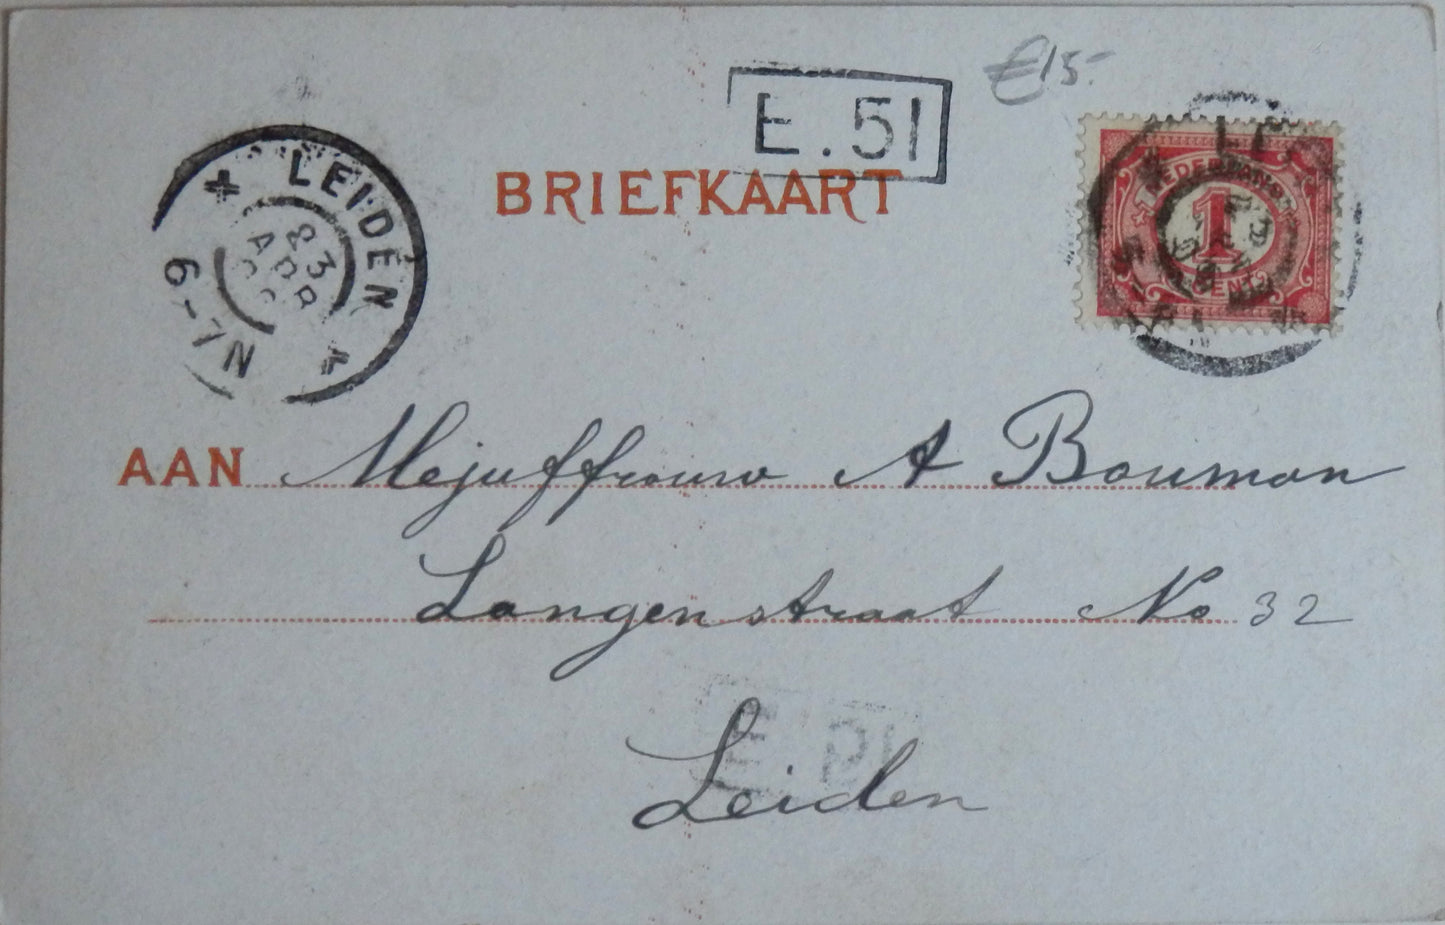 €15-
E.51
BRIEFKAART
LEIDEN
23
APR
6-7N
NEDERLAND
1
CENT
AAN Mejuffrouw A Bouman
Langenstraat No 32
Leiden